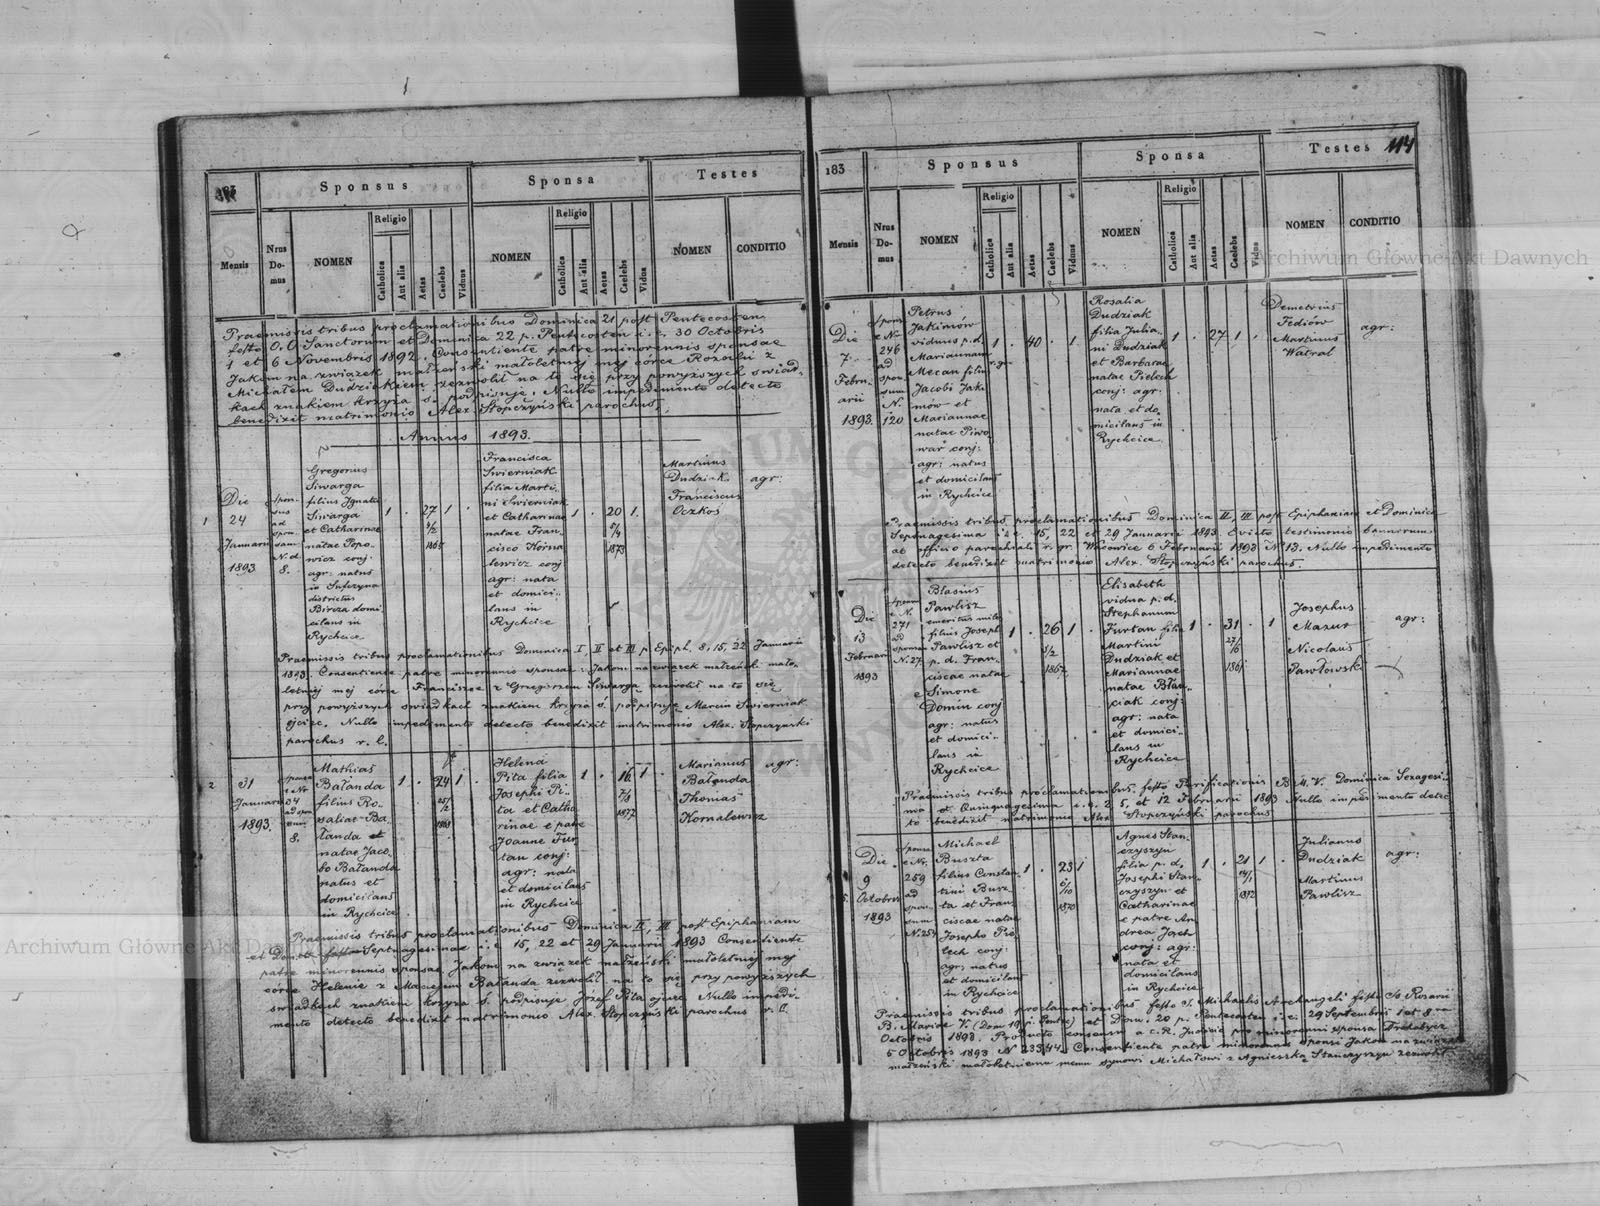 Sponsus
Sponsa
Testes
Mensis
Nrus Domus
NOMEN
Religio
Catholica
Aut alia
Aetas
Caelebs
Vidus
NOMEN
Religio
Catholica
Aut alia
Aetas
Caelebs
Vidua
NOMEN
CONDITIO
Praemissis tribus proclamationibus Dominica 21 post Pentecosten
festo O. O. Sanctorum et Dominica 22 p. Pentecosten i. e. 30 Octobris
1 et 6 Novembris 1892. Consentiente patre minorennis sponsae
Jakom na związek małżeński małoletniej mej córce Rozalii z
Michałem Dudziakiem zezwolił na to się przy powyższych świad-
kach znakiem krzyża s. podpisuję. Nullo impedimento detecto
benedixit matrimonio Alex. Stopczyński parochus.
Annus 1893.
1
Die
24
Januarii
1893
Spon-
sus
ad
spon
sam
N. d.
8.
Gregorius
Siwarga
filius Ignatii
Siwarga
et Catharinae
natae Popo-
wicz conj.
agr: natus
in Sufczyna
districtus
Bircza domi
cilans in
Rychcice
1 . 27 1 .
1865
Francisca
Swierniak
filia Marti-
ni Swierniak
et Catharinae
natae Fran-
cisco Korna
lewicz conj
agr: nata
et domici-
lans in
Rychcice
1 . 20 1 .
1873
Martinus
Dudziak
Franciscus
Oczkoś
agr:
Praemissis tribus proclamationibus Dominica I, II et III p. Epiph. 8, 15, 22 Januarii
1893. Consentiente patre minorennis sponsae: Jakom na związek małżeński mało-
letniej mej córce Franciszce z Grzegorzem Siwargą zezwolił na to się
przy powyższych świadkach znakiem krzyża s. podpisuję Marcin Swierniak
ojciec. Nullo impedimento detecto benedixit matrimonio Alex. Stopczyński
parochus r. l.
2
31
Januarii
1893.
Mathias
Bałanda
filius Ro-
saliae Ba-
łanda
natae Jaco-
bo Bałanda
natus et
domicilans
in Rychcice
1 . 24 1 .
Helena
Pita filia
Josephi Pi-
ta et Catha
rinae e patre
Joanne Fur-
tan conj:
agr: nata
et domicilans
in Rychcice
1 . 16 1 .
1877
Marianus
Bałanda
Thomas
Kornalewicz
agr:
Praemissis tribus proclamationibus Dominica II, III post Epiphaniam
et Domca Septuagesimae i. e. 15, 22 et 29 Januarii 1893 Consentiente
patre minorennis sponsae Jakom na związek małżeński małoletniej mej
córce Helenie z Maciejem Bałanda zezwolił na to się przy powyższych
świadkach znakiem krzyża s. podpisuje Józef Pita ojciec. Nullo impedi-
mento detecto benedixit matrimonio Alex. Stopczyński parochus r. l.
183
Sponsus
Sponsa
Testes 114
Mensis
Nrus Domus
NOMEN
Religio
Catholica
Aut alia
Aetas
Caelebs
Vidus
NOMEN
Religio
Catholica
Aut alia
Aetas
Caelebs
Vidua
NOMEN
CONDITIO
Die
7
Febru-
arii
1893.
Spons
e Nr
246
ad
spon
sam
N.
120
Petrus
Jakimów
viduus p. d.
Mariannam
Mecan filius
Jacobi Jaki
mów et
Mariannae
natae Piwo
war conj:
agr: natus
et domicilans
in Rychcice
1 . 40 . 1
Rosalia
Dudziak
filia Julia-
ni Dudziak
et Barbarae
natae Pielech
conj: agr:
nata et do-
micilans in
Rychcice
1 . 27 1 .
Demetrius
Fediów
Martinus
Watral
agr:
Praemissis tribus proclamationibus Dominica II, III post Epiphaniam et Dominica
Septuagesima i. e. 15, 22 et 29 Januarii 1893. Evicto testimonio bannorum
ab officio parochiali r. gr. Wacowice 6 Februarii 1893 N 13. Nullo impedimento
detecto benedixit matrimonio Alex. Stopczyński parochus.
Die
13
Februarii
1893
Sponsus
e N.
271
ad
sponsam
N. 27
Blasius
Pawlisz
emeritus mile
filius Joseph
Pawlisz et
p. d. Fran-
ciscae natae
e Simone
Domin conj
agr: natus
et domici-
lans in
Rychcice
1 . 26 1 .
1867
Elisabeth
vidua p. d.
Stephanum
Furtan filia
Martini
Dudziak et
Mariannae
natae Bław-
ciak conj:
agr: nata
et domici-
lans in
Rychcice
1 . 31 . 1
1861
Josephus
Mazur
Nicolaus
Pawłowski
agr:
Praemissis tribus proclamationibus, festo Purificationis B. M. V. Dominica Sexagesi-
ma et Quinquagesima i. e. 2, 5, et 12 Februarii 1893 Nullo impedimento detec
to benedixit matrimonio Alex. Stopczyński parochus
5.
Die
9
Octobris
1893
Sponsus
e Nr.
259
ad
spon
sam
N. 254
Michael
Buszta
filius Constan
tini Busz-
ta et Fran-
ciscae natae
Josepho Pie
lech conj:
agr: natus
et domicilans
in Rychcice
1 . 23 1
1870
Agnes Stan-
czyszyn
filia p. d.
Josephi Stan-
czyszyn et
Catharinae
e patre An
drea Jach
conj: agr:
nata et
domicilans
in Rychcice
1 . 21 1 .
1872
Julianus
Dudziak
Martinus
Pawlisz
agr:
Praemissis tribus proclamationibus festo S. Michaelis Archangeli festo So Rosarii
B. Mariae V. (Dom 19 p. Pente) et Dom. 20 p. Pentecosten i. e. 29 Septembris 1 et 8
Octobris 1893. Producto consensu a c. R. Judicio pro minorenni sponsa Drohobycz
5 Octobris 1893 N 23344. Consentiente patre minorennis sponsi Jakom na związek
małżeński małoletniemu memu synowi Michałowi z Agnieszką Stanczyszyn zezwolił
Archiwum Główne Akt Dawnych
Archiwum Główne Akt Dawnych